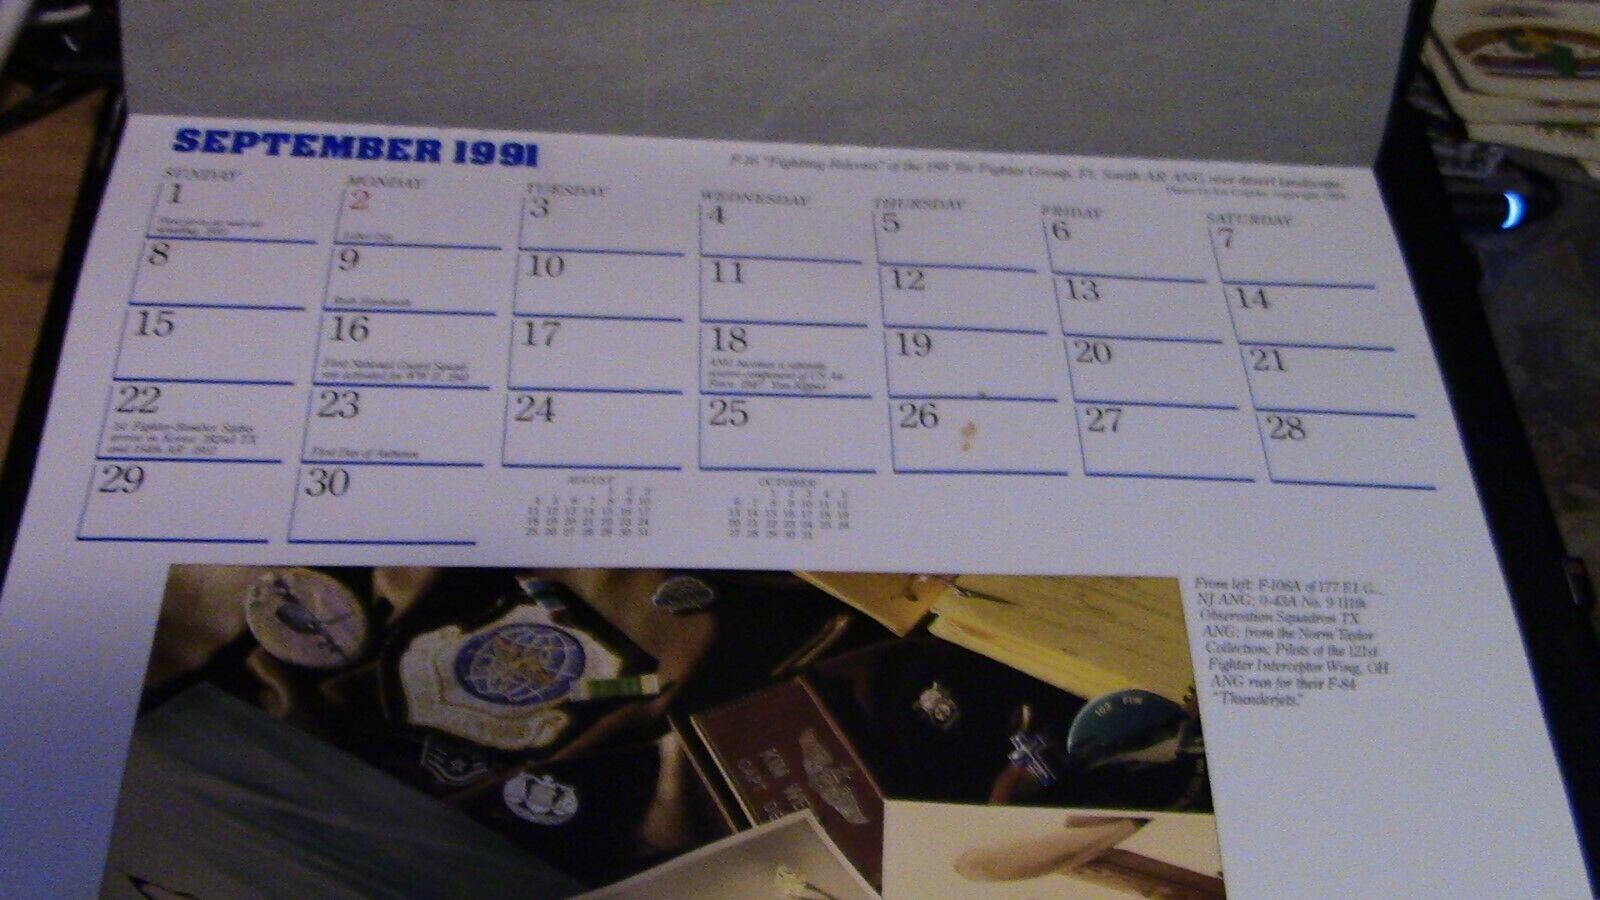 SEPTEMBER 1991
F-16 "Fighting Falcons" of the 188 Tac Fighter Group, Ft. Smith AR ANG over desert landscape.
SUNDAY MONDAY TUESDAY WEDNESDAY THURSDAY FRIDAY SATURDAY
1 2 3 4 5 6 7
Labor Day
8 9 10 11 12 13 14
Rosh Hashanah
15 16 17 18 19 20 21
First National Guard
ANG becomes a
of US Air
Force, 1947 Yom Kippur
22 23 24 25 26 27 28
1st Fighter-Bomber
arrive in Korea: 182nd TX
and 154th AR, 1952
First Day of Autumn
29 30
AUGUST
1 2 3
4 5 6 7 8 9 10
11 12 13 14 15 16 17
18 19 20 21 22 23 24
25 26 27 28 29 30 31
OCTOBER
1 2 3 4 5
6 7 8 9 10 11 12
13 14 15 16 17 18 19
20 21 22 23 24 25 26
27 28 29 30 31
From left: F-106A of 177 F.I.G.,
NJ ANG; 0-43A No. 9 111th
Observation Squadron TX
ANG; from the Norm Taylor
Collection; Pilots of the 121st
Fighter Interceptor Wing, OH
ANG run for their F-84
"Thunderjets."
102 FIW
KEN
CAPT